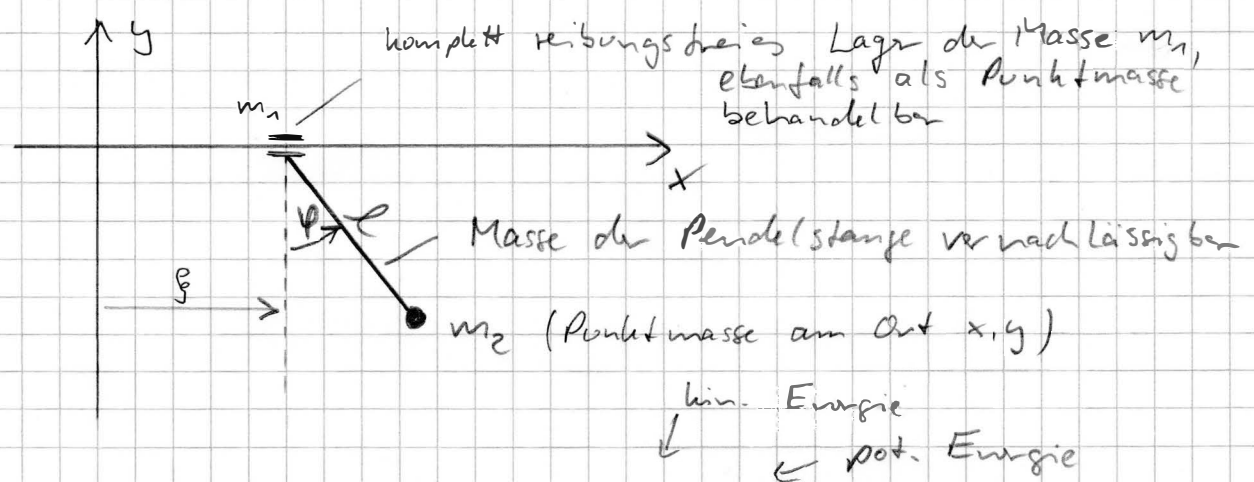 y
komplett reibungsfreies Lager der Masse m₁,
ebenfalls als Punktmasse
behandelbar
m₁
x
φ
l
Masse der Pendelstange vernachlässigbar
ξ
m₂ (Punktmasse am Ort x, y)
kin. Energie
pot. Energie